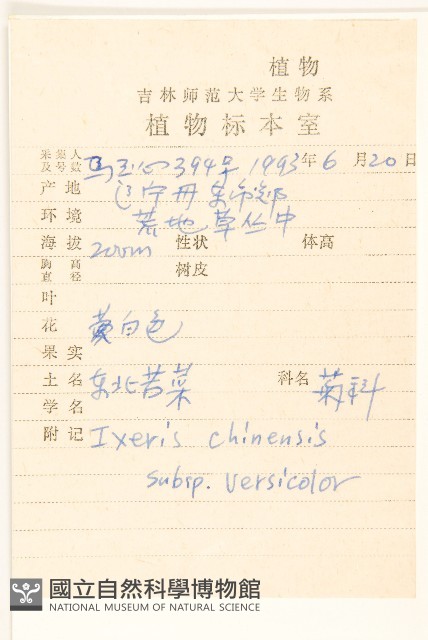 植物
吉林师范大学生物系
植物标本室
采集人及号数 马玉心394号 1993年6月20日
产地 辽宁丹东市郊
环境 荒地草丛中
海拔 200m 性状 体高
胸高直径 树皮
叶
花 黄白色
果实
土名 东北苦菜 科名 菊科
学名
附记 Ixeris chinensis
subsp. versicolor
國立自然科學博物館
NATIONAL MUSEUM OF NATURAL SCIENCE